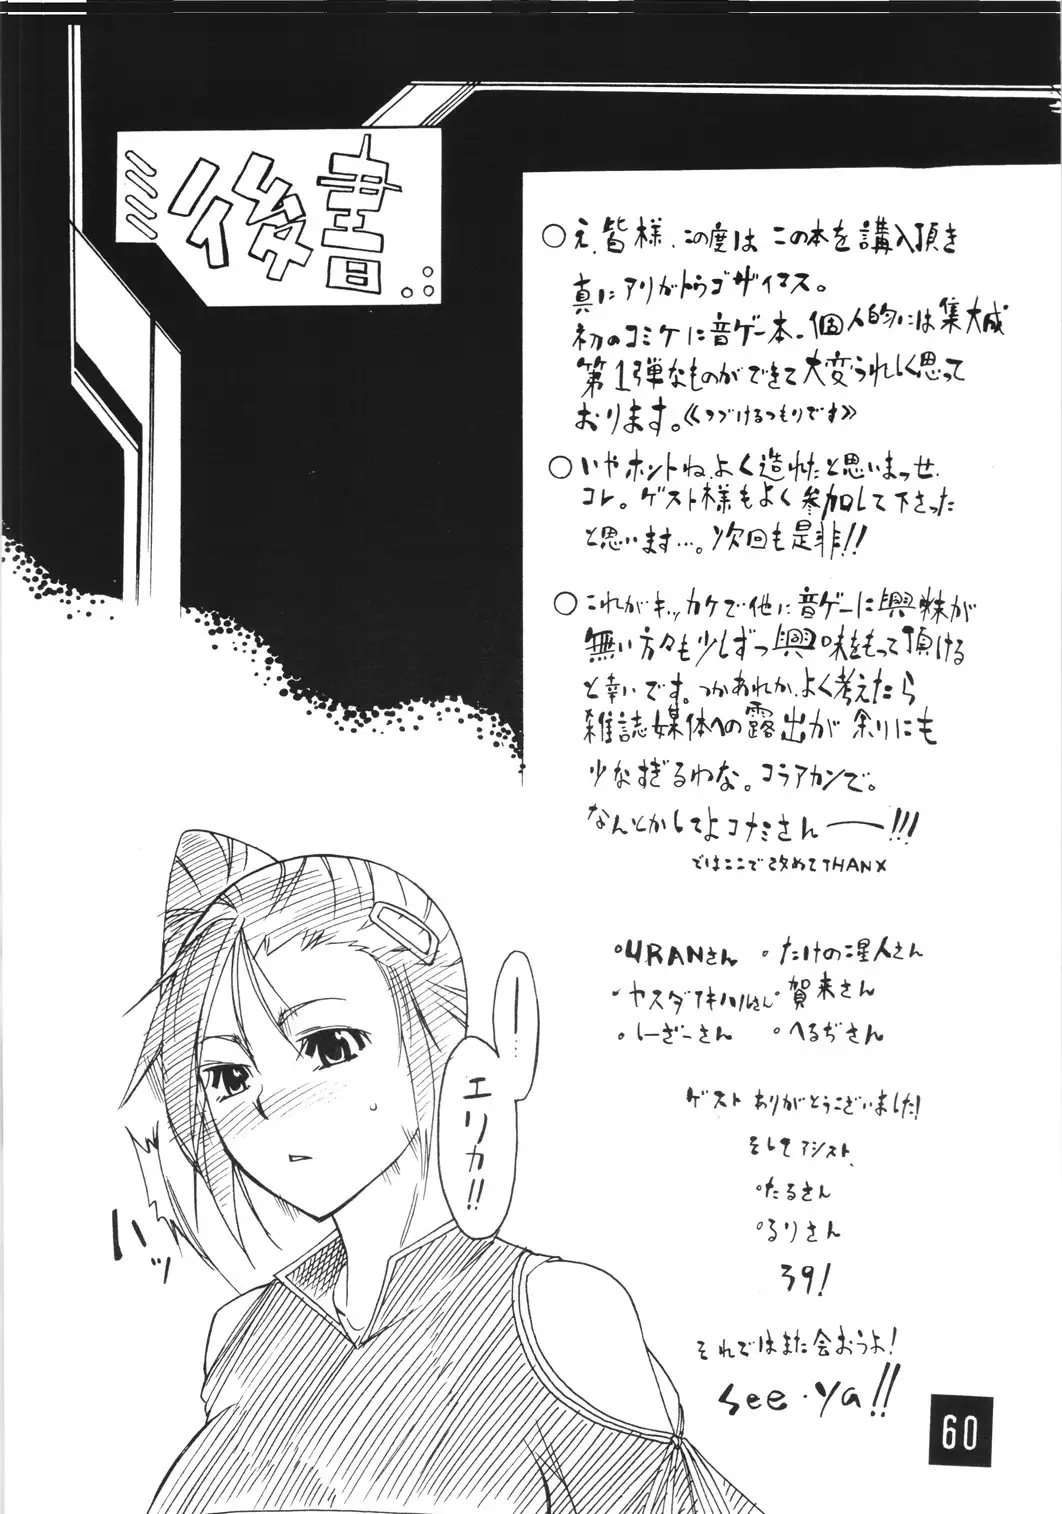 後書
○え、皆様、この度は この本を講入頂き
真に アリがトウゴザイマス。
初のコミケに音ゲー本、個人的には集大成
第1弾なものができて大変うれしく思って
おります。《つづけるつもりです》
○いやホントね、よく造れたと思いまっせ、
コレ。ゲスト様もよく参加して下さった
と思います…。次回も是非!!
○これがキッカケで他に音ゲーに興味が
無い方々も少しずつ興味をもって頂ける
と幸いです。つかあれか、よく考えたら
雑誌媒体への露出が余りにも
少なすぎるわな。コラアカンで。
なんとかしてよコナミさんーー!!!
ではここで改めてTHANX
・URANさん ・たけの星人さん
・ヤスダアキハルさん ・賀来さん
・しーぎーさん ・へるぢさん
ゲストありがとうございました!
そしてアシスト、
・たるさん
・るりさん
39!
それではまた会おうよ!
see・ya!!
ー…エリカ!!
ハッ
60